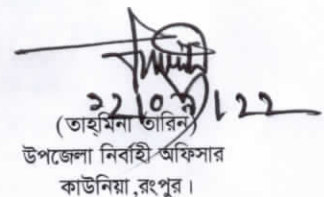 ২২।০৯।২২
(তাহমিনা তারিন)
উপজেলা নির্বাহী অফিসার
কাউনিয়া ,রংপুর।